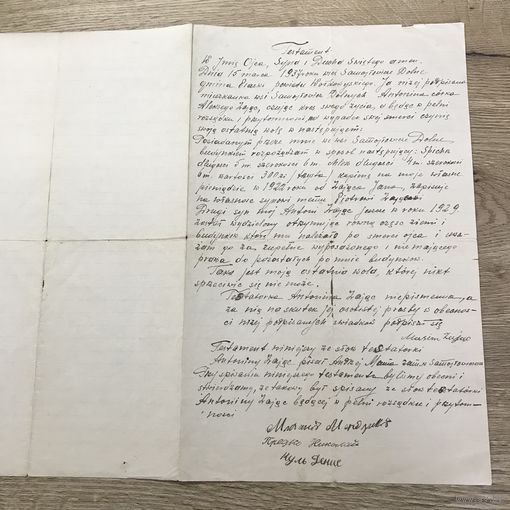 Testament.
W Imię Ojca, Syna i Ducha Świętego amen.
Dnia 15 marca 1937 roku wsi Samojłowicze Dolne
gmina powiatu Wołkowyskiego. Ja niżej podpisana
mieszkanka wsi Samojłowicz Dolnych Antonina córka
Zając, czując kres swego życia, a będąc w pełni
rozsądku i przytomności na wypadek mej śmierci czynię
moją ostatnią wolę w następującym:
Posiadanym przeze mnie we wsi Samojłowicze Dolne
budynkiem rozporządzam w sposób następujący: Spichrz
długości m szerokości 5 m chlew długości 4 m szerokości
6 m wartości 300 zł kupiony za moje własne
pieniądze w 1922 roku od Zająca Jana, zapisuję
na własność synowi memu Piotrowi
Drugi syn mój Antoni Zając jeszcze w roku 1929
został wydzielony otrzymując równą część ziemi i
budynków które mu należały po śmierci ojca i uwa-
żam go za zupełnie wyposażonego i nie mającego
prawa do pozostałych po mnie budynków.
Taka jest moja ostatnia wola, której nikt
sprzeciwić się nie może.
Testatorka Antonina Zając niepiśmienna, a
za nią na skutek jej osobistej prośby w obecnoś-
ci niżej podpisanych świadków podpisał się
Testament niniejszy ze słów testatorki
Antoniny Zając pisał Andrzej zam. w Samojłowiczach
Przy spisaniu niniejszego testamentu byliśmy obecni i
stwierdzamy, że takowy był spisany ze słów testatorki
Antoniny Zając będącej w pełni rozsądku i przytom-
ności
Николай
Нуль Денис